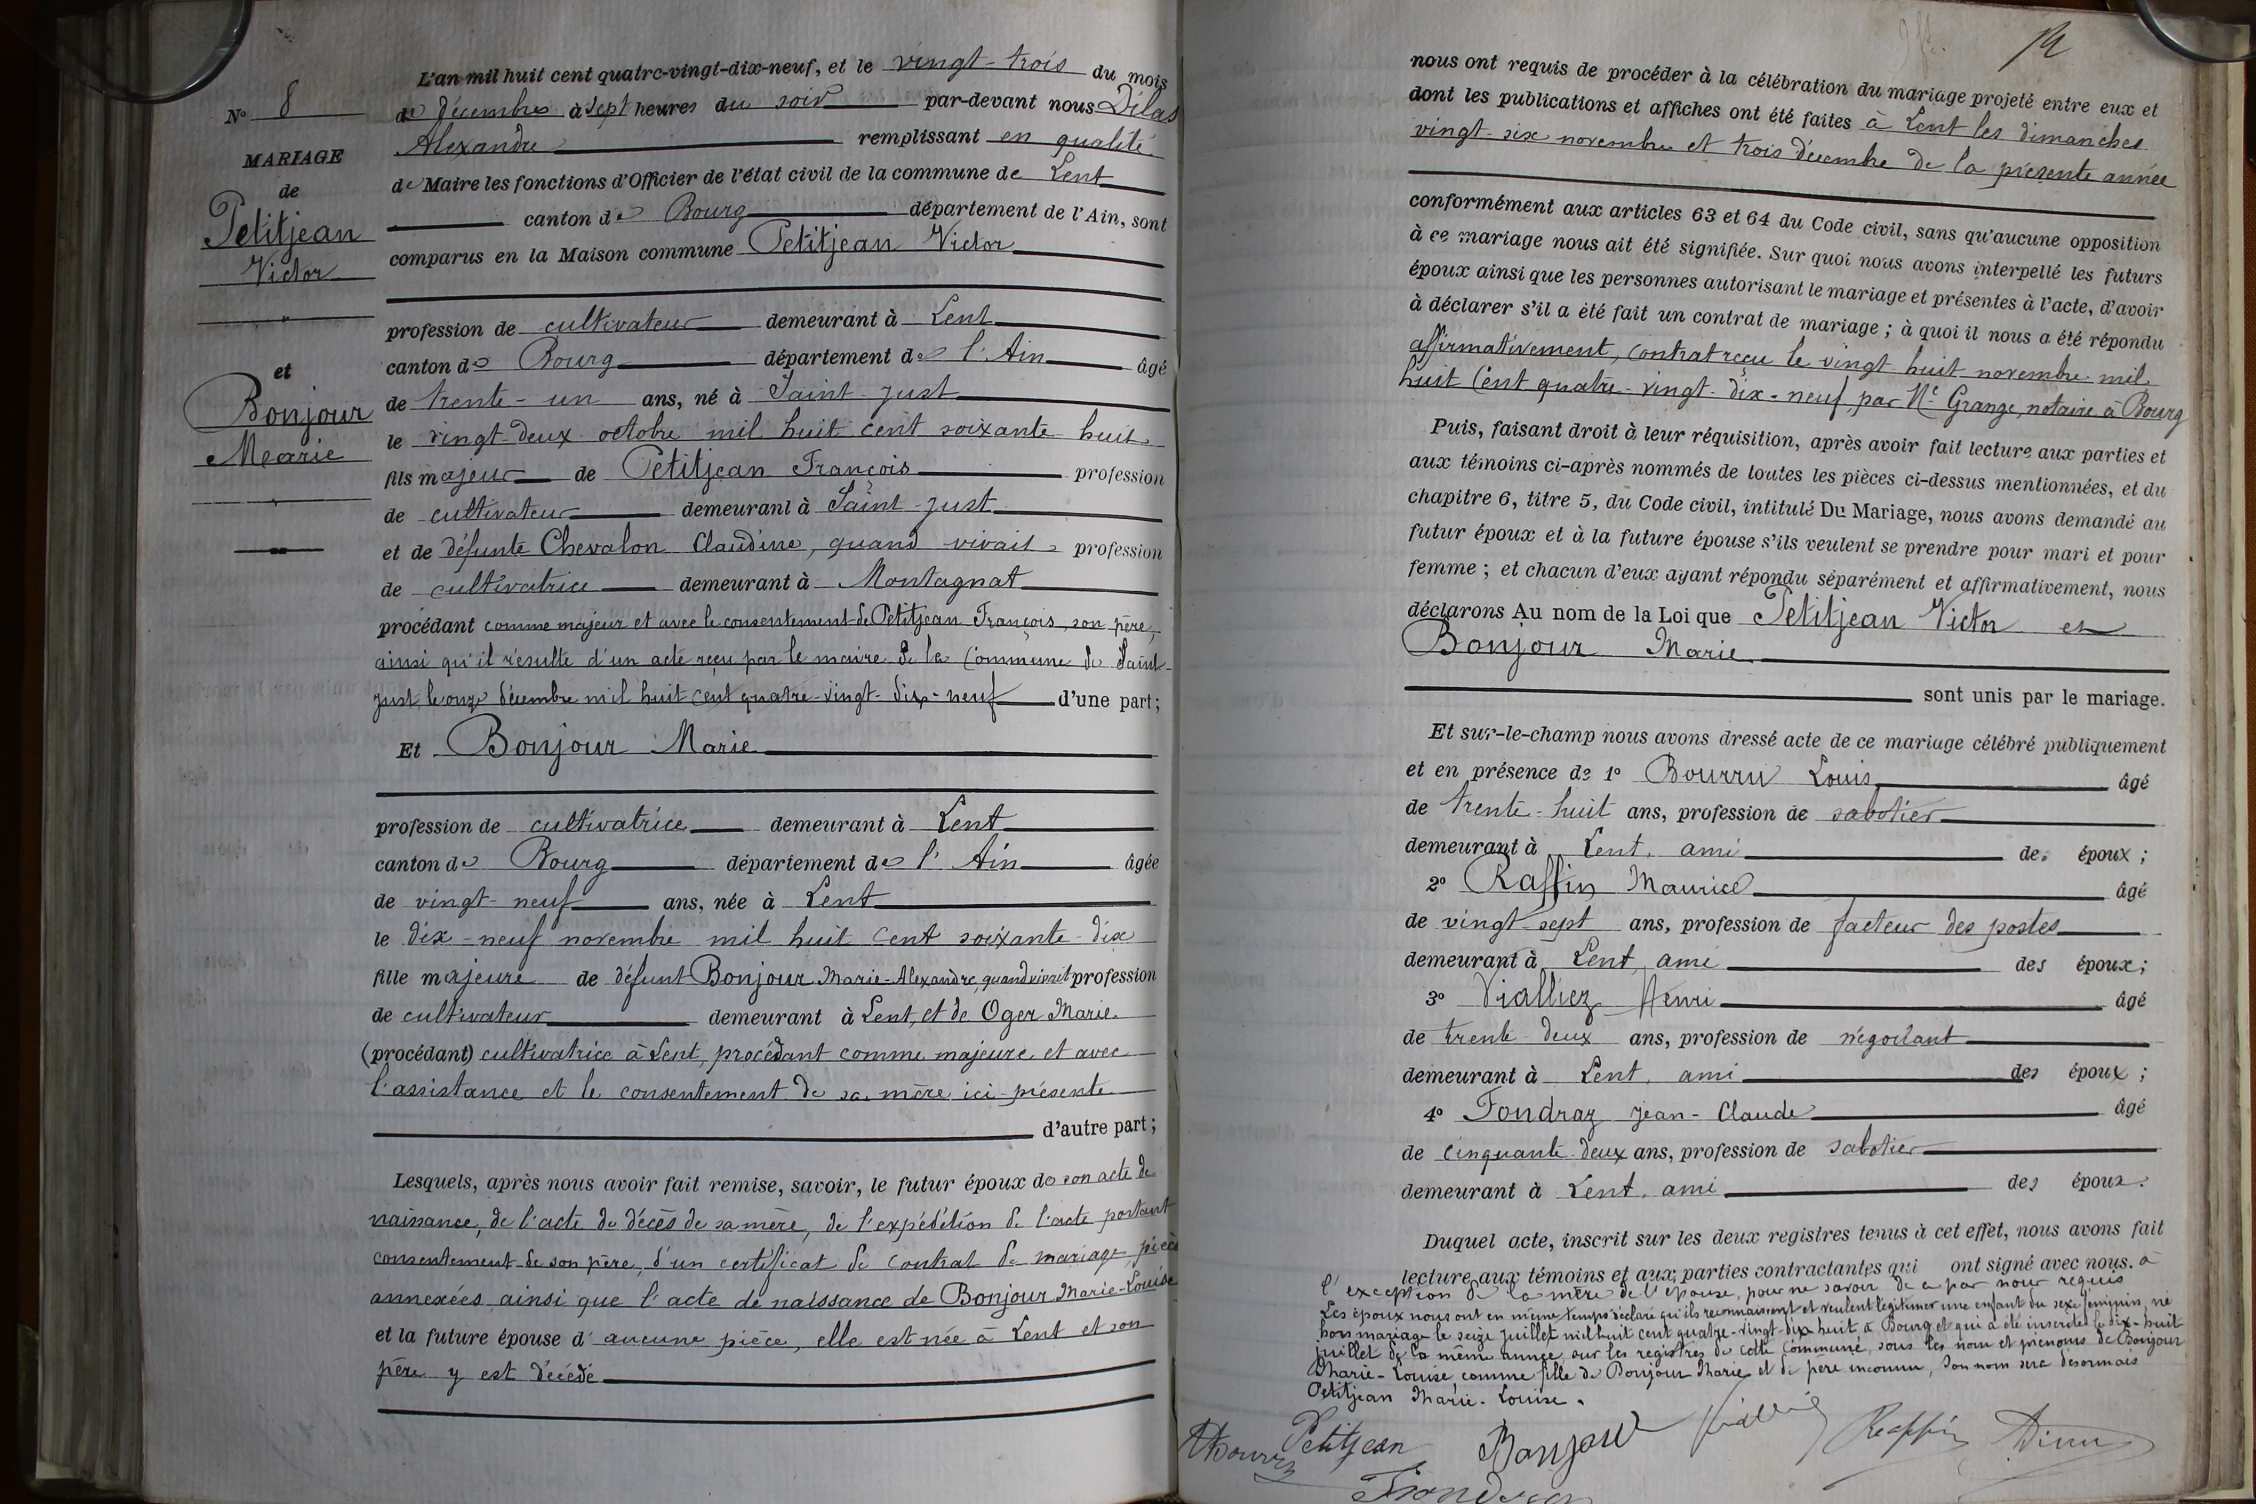 N° 8
MARIAGE
de
Petitjean
Victor
et
Bonjour
Marie
L'an mil huit cent quatre-vingt-dix-neuf, et le vingt-trois du mois
de décembre à sept heures du soir par-devant nous Dilas
Alexandre remplissant en qualité
de Maire les fonctions d'Officier de l'état civil de la commune de Lent
canton de Bourg département de l'Ain, sont
comparus en la Maison commune Petitjean Victor
profession de cultivateur demeurant à Lent
canton de Bourg département de l'Ain âgé
de trente-un ans, né à Saint-Just
le vingt-deux octobre mil huit cent soixante huit
fils majeur de Petitjean François profession
de cultivateur demeurant à Saint-Just
et de défunte Chevalon Claudine, quand vivait profession
de cultivatrice demeurant à Montagnat
procédant comme majeur et avec le consentement de Petitjean François, son père,
ainsi qu'il résulte d'un acte reçu par le maire de la Commune de Saint-
Just, le onze décembre mil huit cent quatre-vingt-dix-neuf d'une part;
Et Bonjour Marie
profession de cultivatrice demeurant à Lent
canton de Bourg département de l'Ain âgée
de vingt-neuf ans, née à Lent
le dix-neuf novembre mil huit cent soixante-dix
fille majeure de défunt Bonjour Marie-Alexandre, quand vivait profession
de cultivateur demeurant à Lent, et de Oger Marie
(procédant) cultivatrice à Lent, procédant comme majeure et avec
l'assistance et le consentement de sa mère ici présente
d'autre part;
Lesquels, après nous avoir fait remise, savoir, le futur époux de son acte de
naissance, de l'acte de décès de sa mère, de l'expédition de l'acte portant
consentement de son père, d'un certificat de contrat de mariage, pièces
annexées ainsi que l'acte de naissance de Bonjour Marie-Louise
et la future épouse d'aucune pièce, elle est née à Lent et son
père y est décédé
nous ont requis de procéder à la célébration du mariage projeté entre eux et
dont les publications et affiches ont été faites à Lent les dimanches
vingt-six novembre et trois décembre de la présente année
conformément aux articles 63 et 64 du Code civil, sans qu'aucune opposition
à ce mariage nous ait été signifiée. Sur quoi nous avons interpellé les futurs
époux ainsi que les personnes autorisant le mariage et présentes à l'acte, d'avoir
à déclarer s'il a été fait un contrat de mariage; à quoi il nous a été répondu
affirmativement, contrat reçu le vingt huit novembre mil
huit cent quatre-vingt-dix-neuf par Me Grange, notaire à Bourg
Puis, faisant droit à leur réquisition, après avoir fait lecture aux parties et
aux témoins ci-après nommés de toutes les pièces ci-dessus mentionnées, et du
chapitre 6, titre 5, du Code civil, intitulé Du Mariage, nous avons demandé au
futur époux et à la future épouse s'ils veulent se prendre pour mari et pour
femme; et chacun d'eux ayant répondu séparément et affirmativement, nous
déclarons Au nom de la Loi que Petitjean Victor et
Bonjour Marie
sont unis par le mariage.
Et sur-le-champ nous avons dressé acte de ce mariage célébré publiquement
et en présence de 1° Bourru Louis âgé
de trente-huit ans, profession de sabotier
demeurant à Lent, ami des époux;
2° Raffin Maurice âgé
de vingt-sept ans, profession de facteur des postes
demeurant à Lent, ami des époux;
3° Vialliez Henri âgé
de trente-deux ans, profession de négociant
demeurant à Lent, ami des époux;
4° Fondraz Jean-Claude âgé
de cinquante-deux ans, profession de sabotier
demeurant à Lent, ami des époux.
Duquel acte, inscrit sur les deux registres tenus à cet effet, nous avons fait
lecture aux témoins et aux parties contractantes qui ont signé avec nous. à
l'exception de la mère de l'épouse, pour ne savoir de ce par nous requis
Les époux nous ont en même temps déclaré qu'ils reconnaissent et veulent légitimer une enfant du sexe féminin, né
hors mariage le seize juillet mil huit cent quatre-vingt-dix-huit à Bourg et qui a été inscrite le dix-huit
juillet de la même année sur les registres de cette commune, sous les nom et prénoms de Bonjour
Marie-Louise, comme fille de Bonjour Marie et de père inconnu, Son nom sera désormais
Petitjean Marie-Louise.
Petitjean Bonjour Raffin